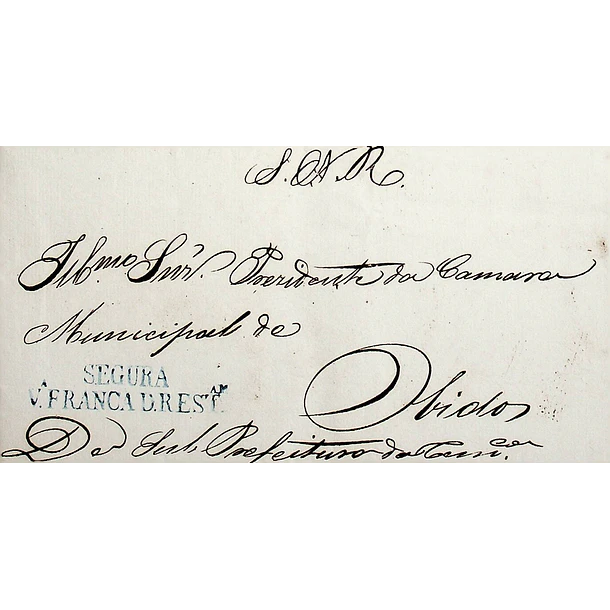 S. N. R.
Illmo. Snr. Presidente da Camara
Municipal de
SEGURA
V.ª FRANCA D. RESTAR.
Obidos
Da Sub Prefeitura da